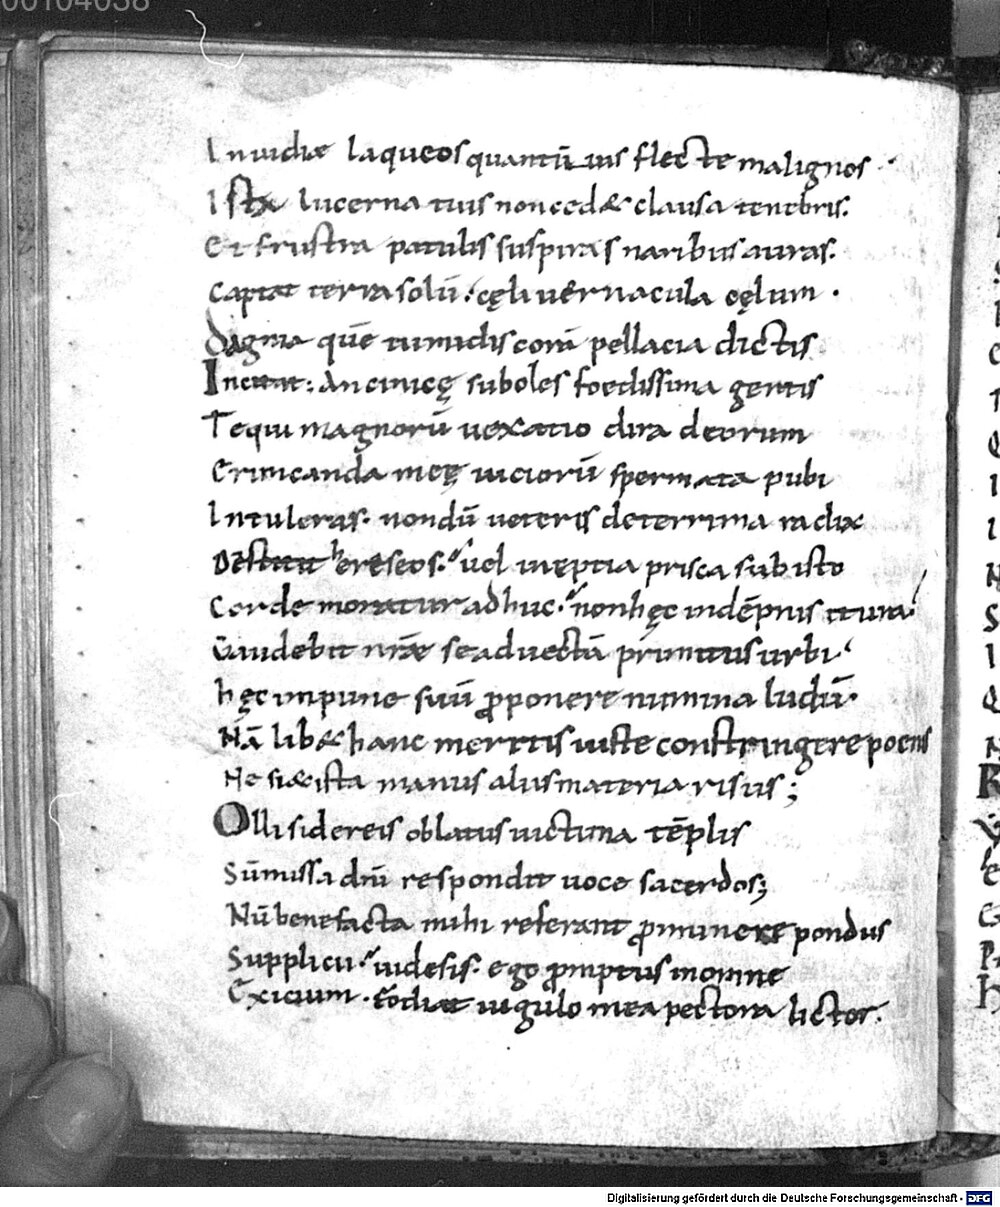 00104038
Inuidiae laqueos quantū uis flecte malignos
Ista lucerna tuis non ced& clausa tenebris.
Et frustra patulis suspiras naribus auras.
Captat terra solū. cęli uernacula cęlum.
quē tumidis cord pellacia dictis
Incitat: an cinicę suboles foedissima gentis
Te qui magnorū uexatio dira deorum
Erimicanda meę uiciorū spermata pubi
Intuleras. nondū ueteris deterrima radix
Destitit hereseos. uel ineptia prisca sub isto
Corde moratur adhuc. non hęc indēpnis itura
Gaudebit nr̄ae se aduectā primitus urbi
hęc impune suū proponere numina ludū.
Nā lib& hanc meritis iuste constringere poenis
Ne si& ista manus aliis materia risus;
Olli sidereis oblatus uictima tēplis
Sūmissa dn̄i respondit uoce sacerdos;
Nū benefacta mihi referant prominere pondus
Supplicii. uidesis. ego promptus in omne
Exicium. fodiat iugulo mea pectora lictor.
Digitalisierung gefördert durch die Deutsche Forschungsgemeinschaft - DFG